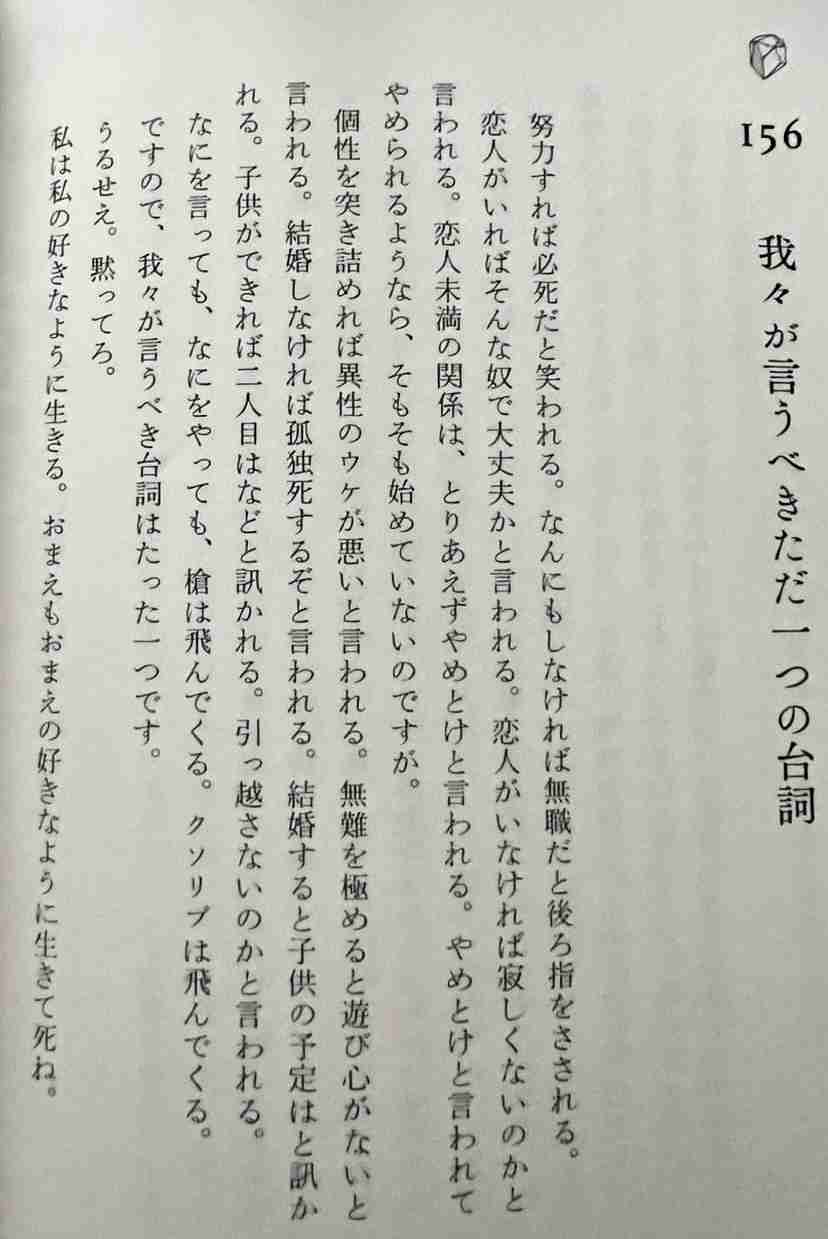 156 我々が言うべきただ一つの台詞
努力すれば必死だと笑われる。なんにもしなければ無職だと後ろ指をさされる。
恋人がいればそんな奴で大丈夫かと言われる。恋人がいなければ寂しくないのかと
言われる。恋人未満の関係は、とりあえずやめとけと言われる。やめとけと言われて
やめられるようなら、そもそも始めていないのですが。
個性を突き詰めれば異性のウケが悪いと言われる。無難を極めると遊び心がないと
言われる。結婚しなければ孤独死するぞと言われる。結婚すると子供の予定はと訊か
れる。子供ができれば二人目はなどと訊かれる。引っ越さないのかと言われる。
なにを言っても、なにをやっても、槍は飛んでくる。クソリプは飛んでくる。
ですので、我々が言うべき台詞はたった一つです。
うるせえ。黙ってろ。
私は私の好きなように生きる。おまえもおまえの好きなように生きて死ね。